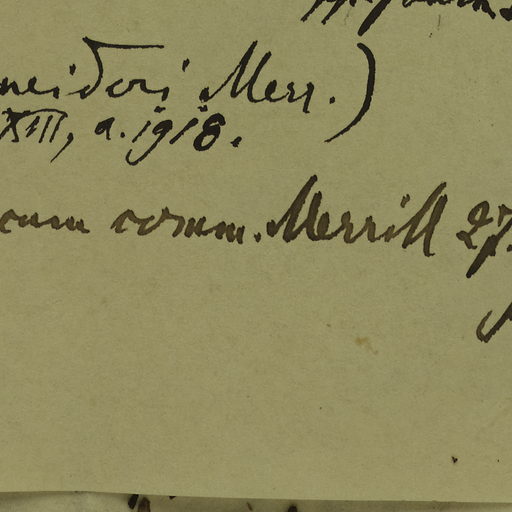 neideri Merr.)
XIII, a. 1918.
cum comm. Merrill 27.